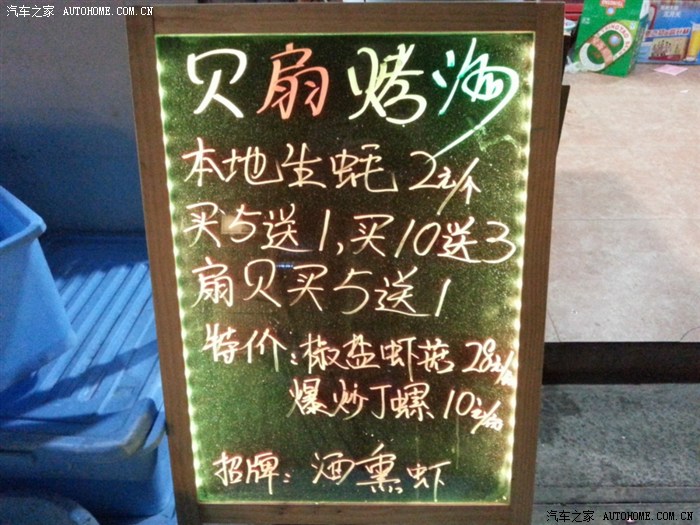 汽车之家 AUTOHOME.COM.CN
贝扇烤海
本地生蚝 2元/个
买5送1,买10送3
扇贝买5送1
特价:椒盐虾菇 28元/份
爆炒丁螺 10元/份
招牌:酒熏虾
汽车之家 AUTOHOME.COM.CN